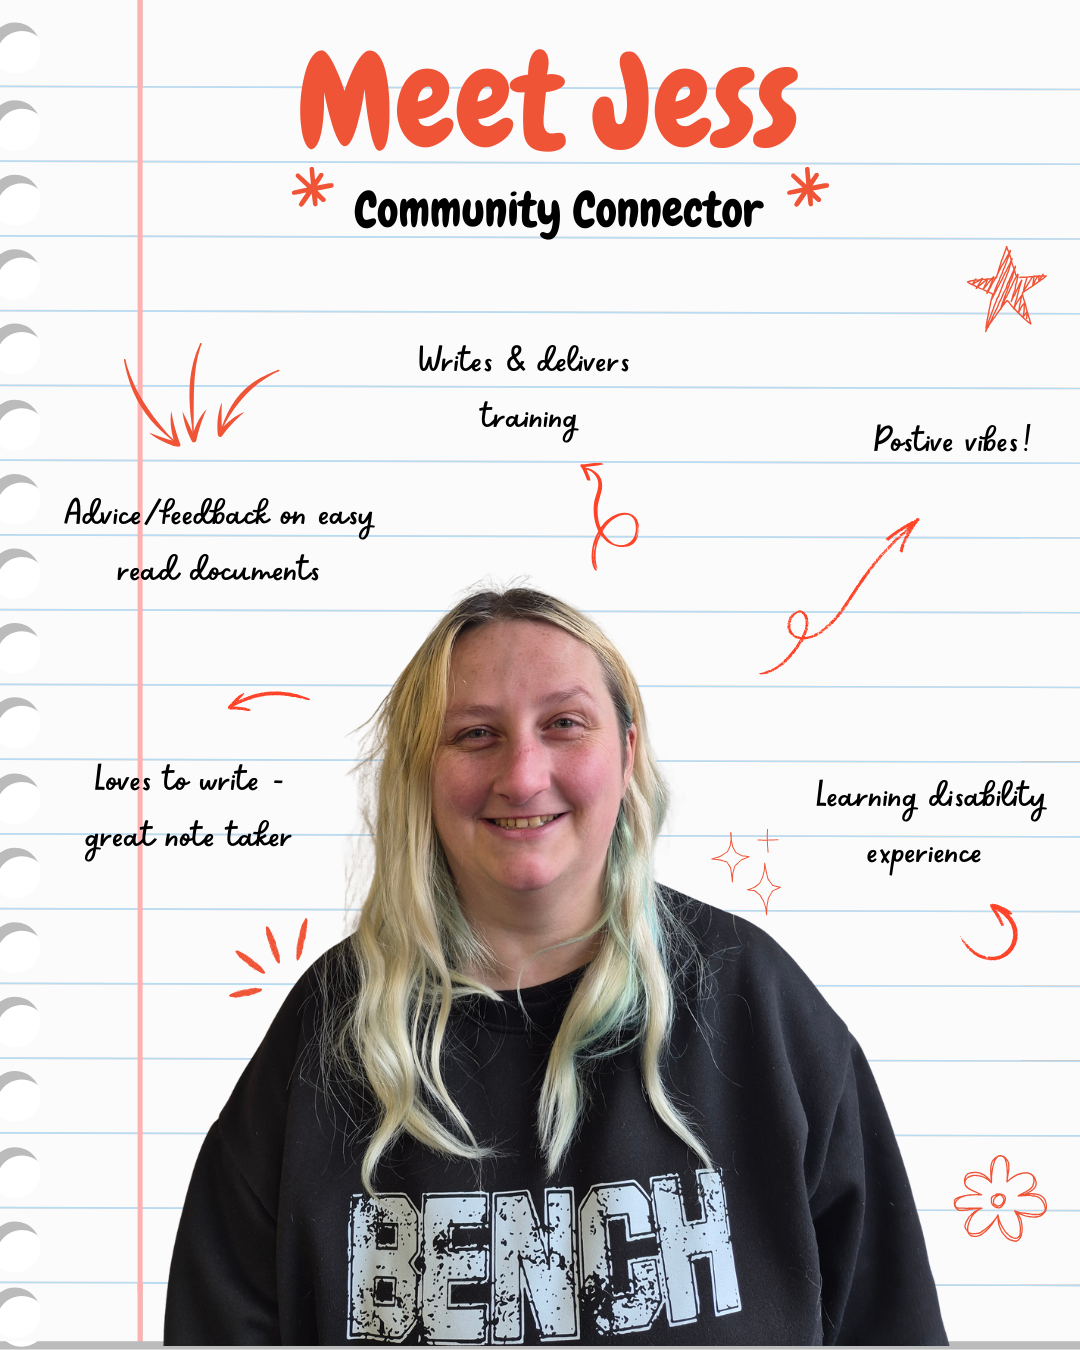 Meet Jess
Community Connector
Writes & delivers
training
Postive vibes!
Advice/feedback on easy
read documents
Loves to write -
great note taker
Learning disability
experience
BENCH